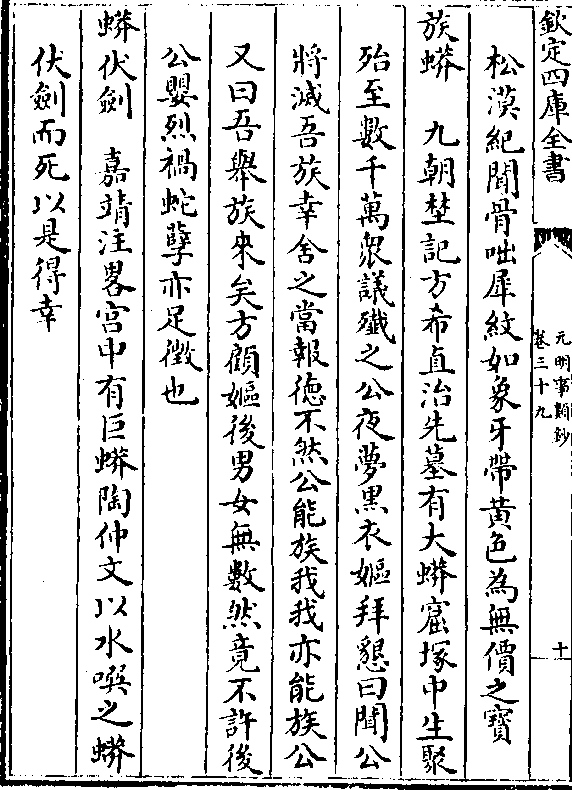 欽定四庫全書
元明事類鈔
卷三十九
十
松漠紀聞骨咄犀紋如象牙帶黃色為無價之寶
族蟒　九朝埜記方希直治先墓有大蟒窟塚中生聚
殆至數千萬衆議殲之公夜夢黒衣嫗拜懇曰聞公
將滅吾族幸舍之當報徳不然公能族我我亦能族公
又曰吾舉族來矣方顧嫗後男女無數然竟不許後
公嬰烈禍蛇孽亦足徴也
蟒伏劍　嘉靖注畧宫中有巨蟒陶仲文以水噀之蟒
伏劍而死以是得幸